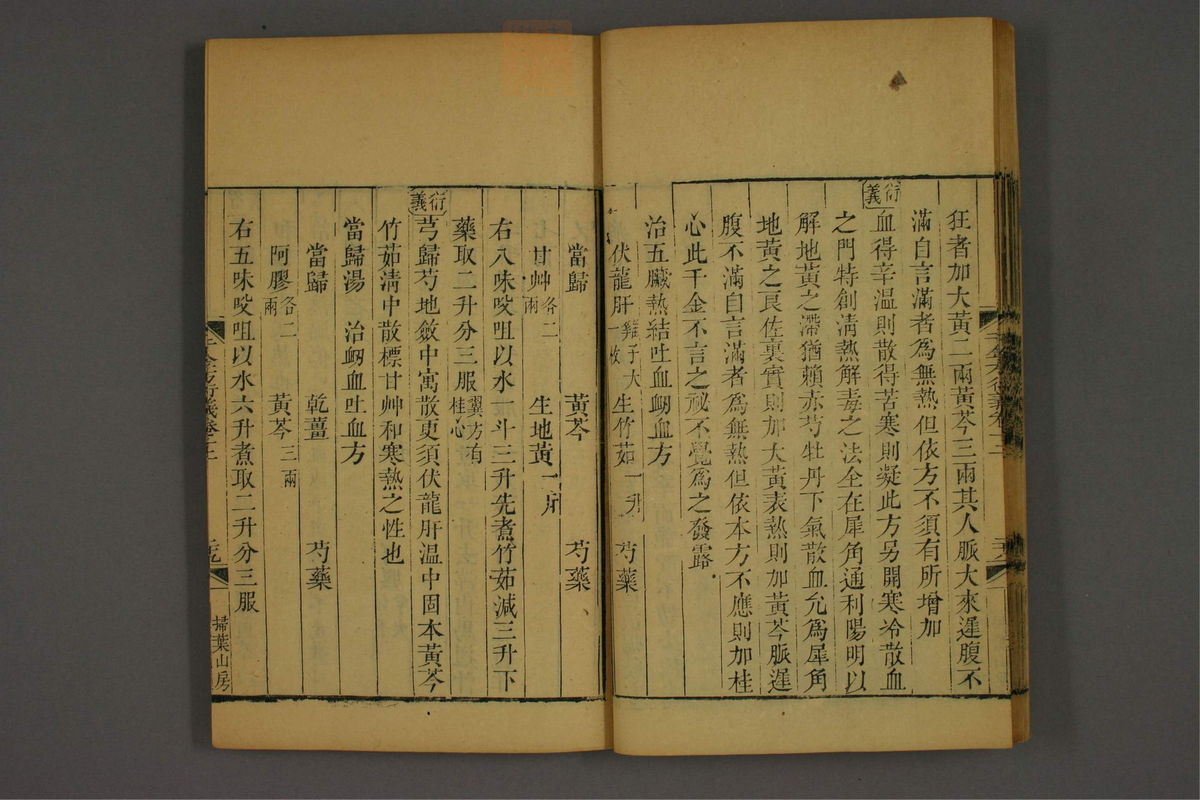 狂者加大黃二兩黃芩三兩其人脈大來遲腹不
滿自言滿者爲無熱但依方不須有所增加
衍義
血得辛温則散得苦寒則凝此方另開寒冷散血
之門特創淸熱解毒之法全在犀角通利陽明以
解地黃之滯猶賴赤芍牡丹下氣散血允爲犀角
地黃之良佐裏實則加大黃表熱則加黃芩脈遲
腹不滿自言滿者爲無熱但依本方不應則加桂
心此千金不言之祕不覺爲之發露
治五臟熱結吐血衂血方
伏龍肝雞子大一枚 生竹茹一升 芍藥
當歸 黃芩 芍藥
甘艸各二兩 生地黃一斤
右八味㕮咀以水一斗三升先煮竹茹減三升下
藥取二升分三服翼方有桂心
衍義
芎歸芍地斂中寓散更須伏龍肝温中固本黃芩
竹茹淸中散標甘艸和寒熱之性也
當歸湯 治衂血吐血方
當歸 乾薑 芍藥
阿膠各二兩 黃芩三兩
右五味㕮咀以水六升煮取二升分三服
千金方衍義卷十二
掃葉山房